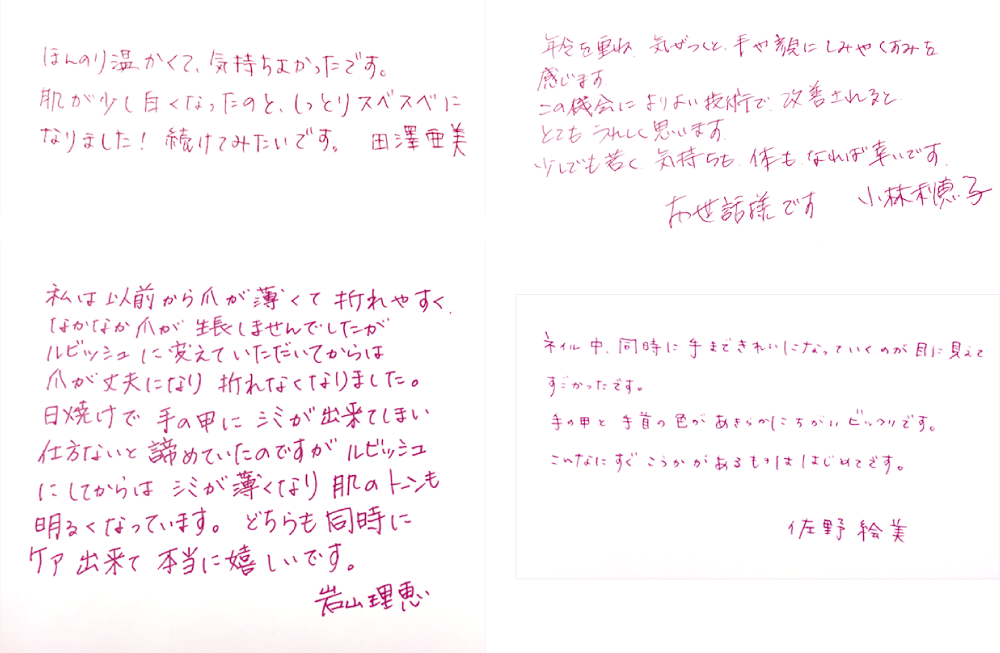 ほんのり温かくて、気持ちよかったです。
肌が少し白くなったのと、しっとりスベスベに
なりました！ 続けてみたいです。 田澤亜美
年令を重ね 気がつくと、手や顔にしみやくすみを
感じます
この機会に よりよい技術で、改善されると
とても うれしく思います.
少しでも若く、気持ちも、体も、なれば幸いです.
お世話様です 小林利恵子
私は以前から爪が薄くて 折れやすく、
なかなか爪が 生長しませんでしたが
ルビッシュに変えていただいてからは
爪が丈夫になり 折れなくなりました。
日焼けで 手の甲に シミが出来てしまい
仕方ないと 諦めていたのですが ルビッシュ
にしてからは シミが薄くなり 肌のトーンも
明るくなっています。 どちらも同時に
ケア 出来て 本当に嬉しいです。
岩山理恵
ネイル中、同時に手まできれいになっていくのが目に見えて
すごかったです。
手の甲と 手首の色が あきらかにちがい ビックリです。
こんなにすぐ こうかがあるものははじめてです。
佐野絵美